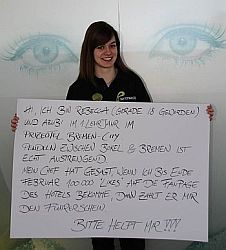 HI, ICH BIN REBECCA (GERADE 18 GEWORDEN)
UND AZUBI IM 1. LEHRJAHR IM
PRIZEOTEL BREMEN-CITY.
PENDELN ZWISCHEN BÜKEL & BREMEN IST
ECHT ANSTRENGEND.
MEIN CHEF HAT GESAGT, WENN ICH BIS ENDE
FEBRUAR 100.000 "LIKES" AUF DIE FANPAGE
DES HOTELS BEKOMME, DAN ZAHLT ER MIR
DEN FÜHRERSCHEIN
BITTE HELFT MIR!!!